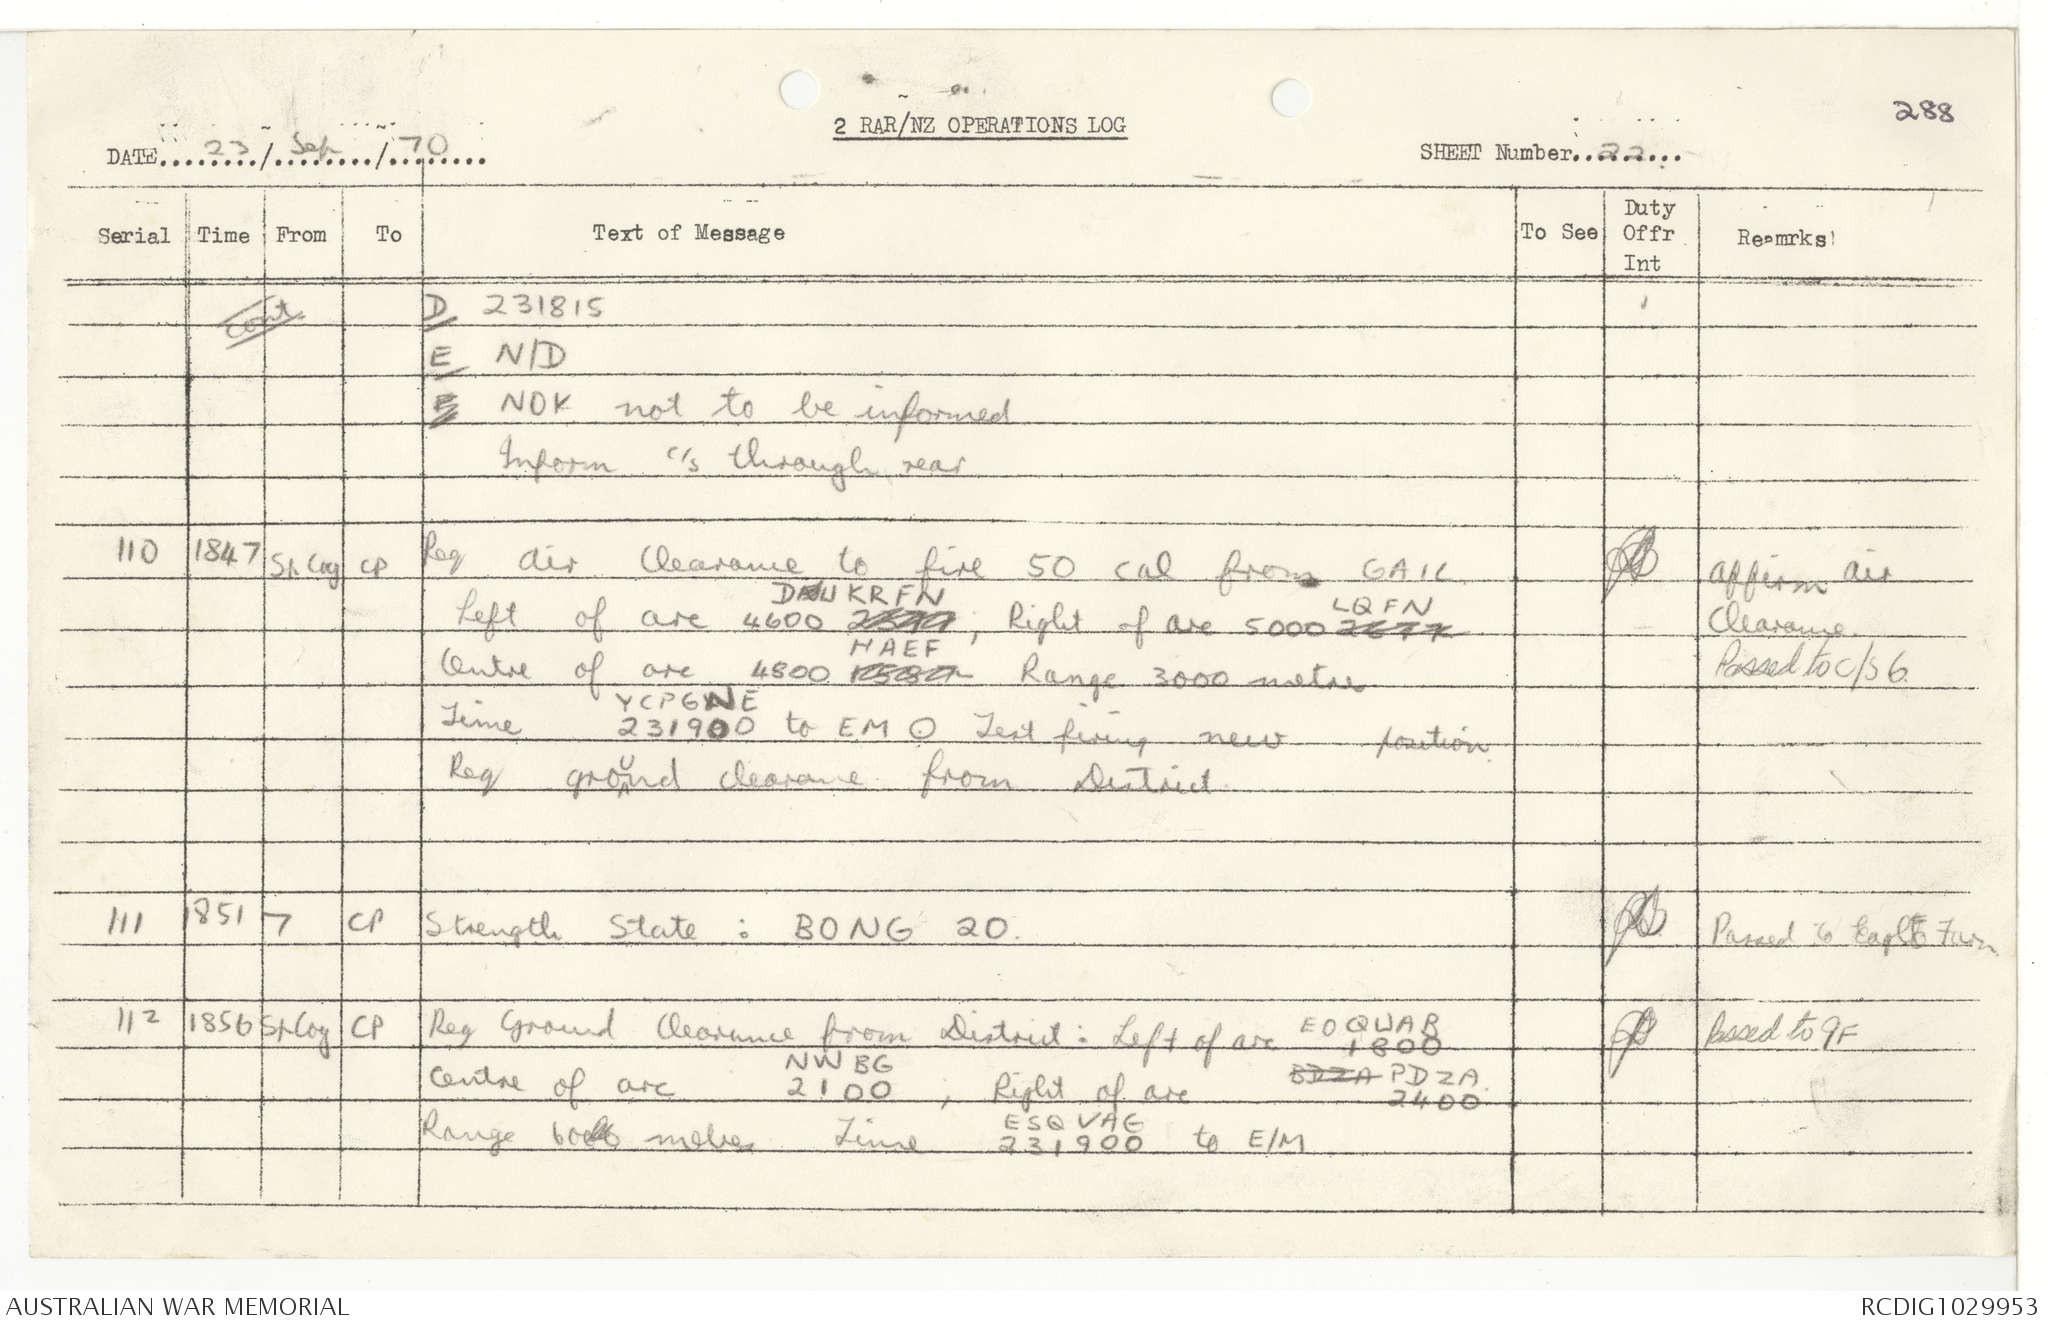 288
2 RAR/NZ OPERATIONS LOG
DATE 23/Sep/70
SHEET Number 22
Serial Time From To Text of Message To See Duty Offr Int Remrks
cont D 231815
E N/D
NOK not to be informed
Inform c/s through rear
110 1847 Sp Coy CP Req air clearance to fire 50 cal from GAIL affirm air
DAUKRFN LQFN
Left of arc 4600 , Right of arc 5000 Clearance.
HAEF
Centre of arc 4800 Range 3000 metre Passed to C/S 6.
YCPGWNE
Time 231900 to EM O Test firing new position
Req ground clearance from District
111 1851 7 CP Strength State : BONG 20. Passed to Eagle Farm
112 1856 Sp Coy CP Req Ground Clearance from District: Left of arc EOQWAR 1800 Passed to 9F
NWBG BDZA PDZA.
Centre of arc 2100 , Right of arc 2400
ESQVAG
Range metres Time 231900 to E/M
AUSTRALIAN WAR MEMORIAL RCDIG1029953